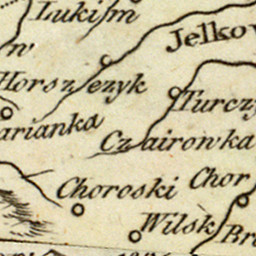 Lukism
Jelkov
Horszezyk
Turczy
arianka
Czaironka
Choroski
Chor
Wilsk
Br